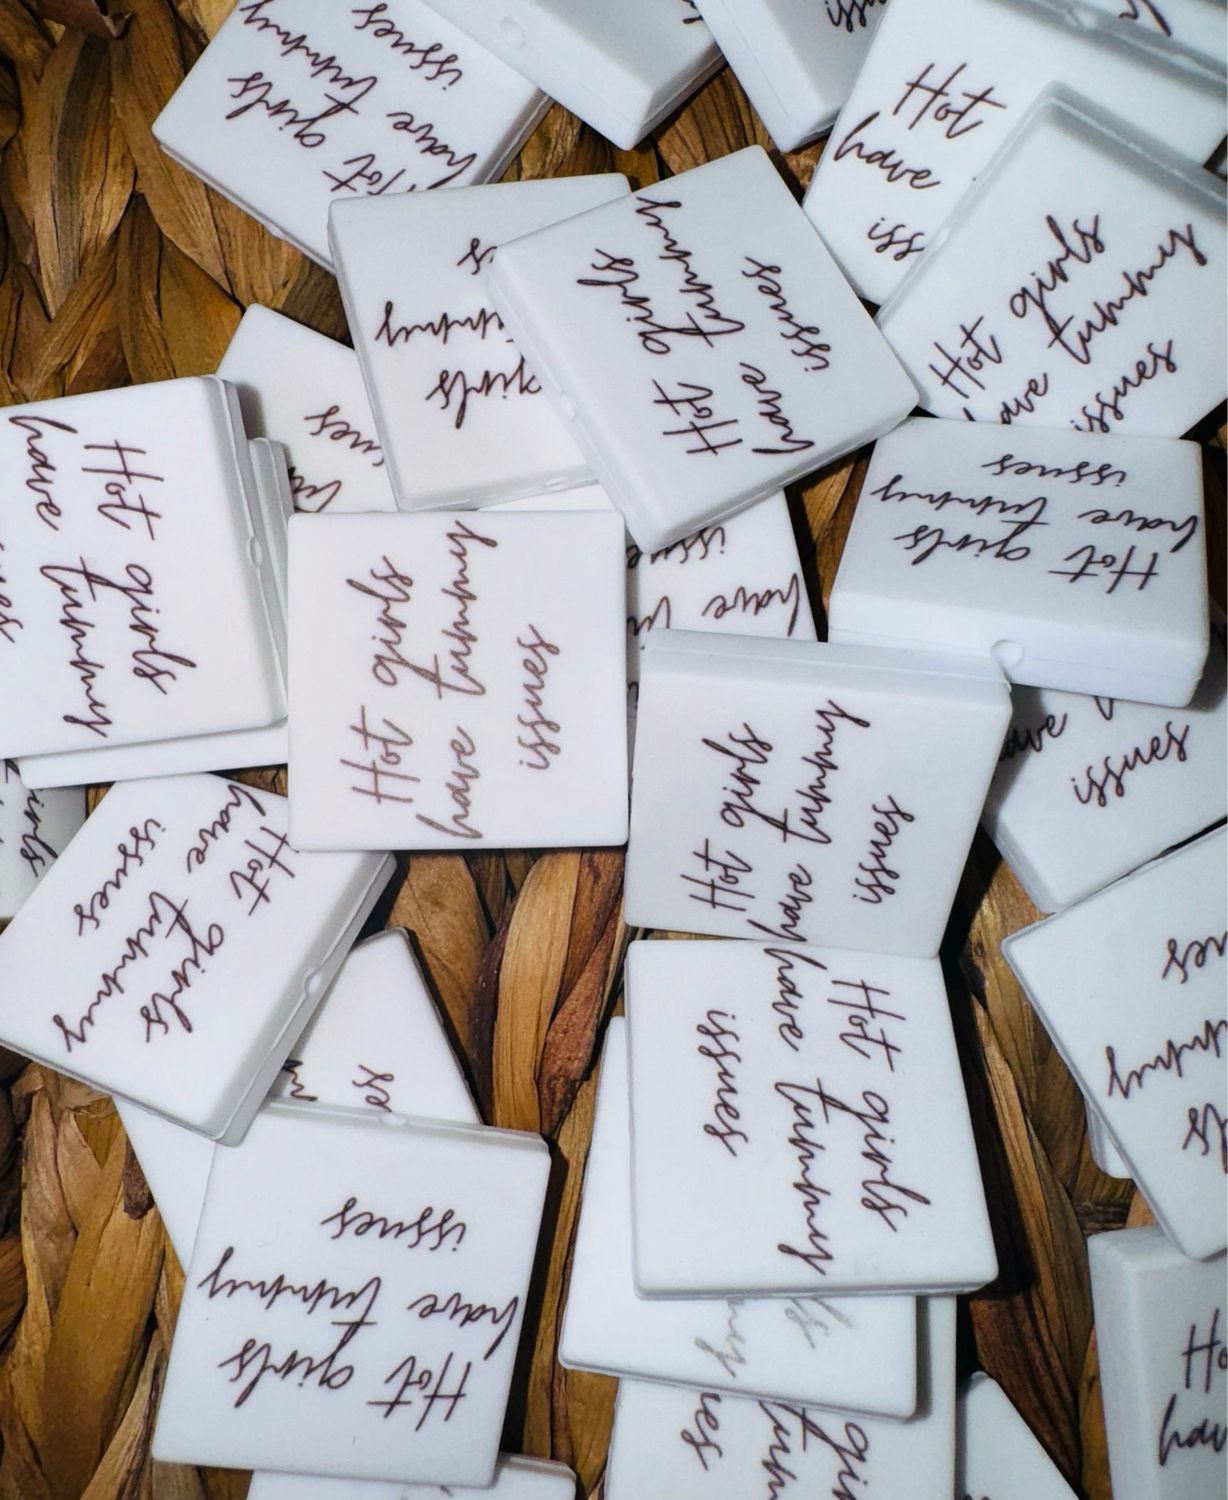 Hot girls
have tummy
issues
Hot
have
iss
girls
tummy
es
Hot girls
have tummy
issues
Hot girls
ave tummy
issues
Hot girls
have tummy
Hot girls
have tummy
issues
Hot girls
have tummy
issues
have
issue
Hot girls
have tummy
issues
ave
issues
Hot girls
have tummy
issues
girls
Hot girls
have tummy
issues
tummy
Hot girls
have tummy
issues
Ho
hav